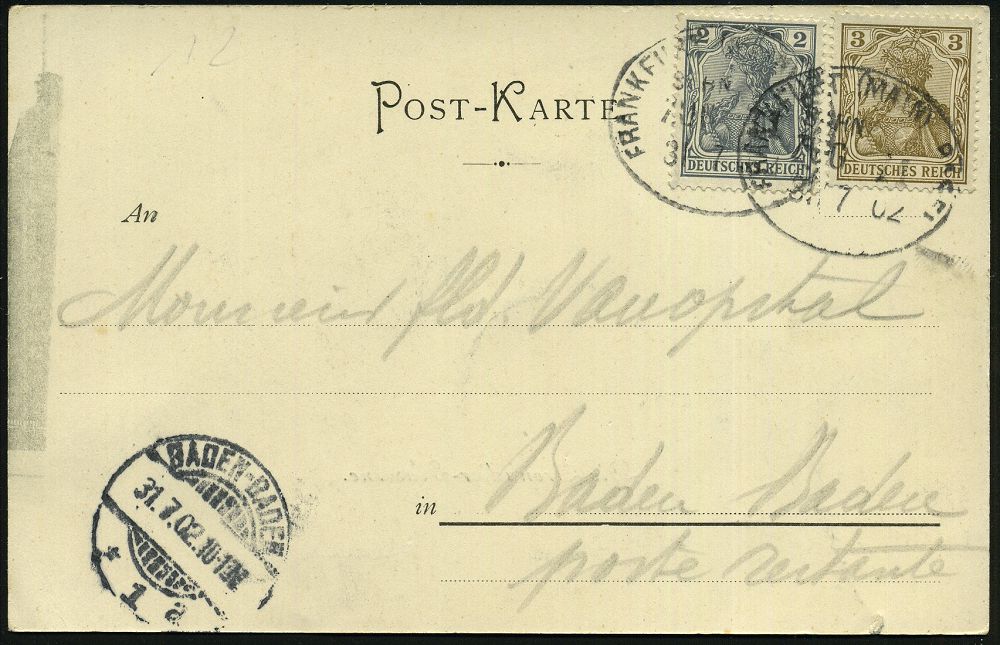 12
2 2
DEUTSCHES REICH
3 3
DEUTSCHES REICH
FRANKFURT (MAIN)
31 7 02
POST-KARTE
An
Monsieur Vanopstal
in Baden Baden
poste restante
BADEN-BADEN
31.7.02.10-11
* 1 a